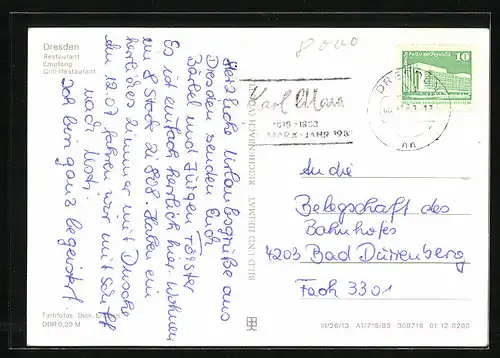 Dresden
Restaurant
Empfang
Grill-Restaurant
Herzliche Urlaubsgrüße aus
Dresden senden Euch
Bärbel und Jürgen
Es ist einfach herrlich hier. Wohnen
im 8 Stock Zi 808. Haben ein
herrliches Zimmer mit Dusche
Am 12.07 fahren wir mit Schiff
nach
Ich bin ganz begeistert.
Farbfotos: Dick,
DDR 0,20 M
BILD UND HEIMAT REICHENBACH
8000
Karl Marx
1818-1883
MARX-JAHR 198
DRESDEN
10
DDR
An die
Belegschaft des
Bahnhofes
4203 Bad Dürrenberg
Fach 3301
III/26/13 A1/716/83 300718 01 12 0280